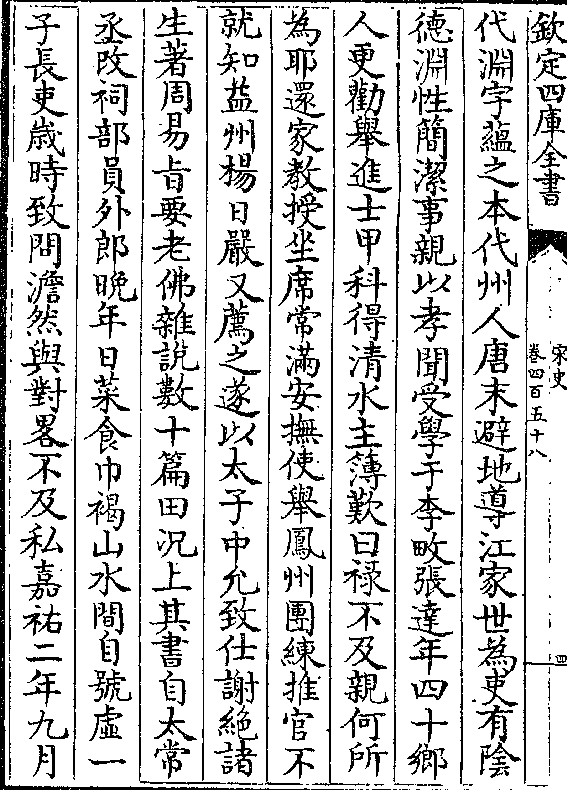 欽定四庫全書
宋史
卷四百五十八
四
代淵字蘊之本代州人唐末避地導江家世為吏有陰
德淵性簡潔事親以孝聞受學于李畋張達年四十鄉
人更勸舉進士甲科得清水主簿歎曰祿不及親何所
為耶還家教授坐席常滿安撫使舉鳳州團練推官不
就知益州楊日嚴又薦之遂以太子中允致仕謝絕諸
生著周易旨要老佛雜說數十篇田況上其書自太常
丞改祠部員外郎晚年日菜食巾褐山水間自號虛一
子長吏歲時致問澹然與對畧不及私嘉祐二年九月